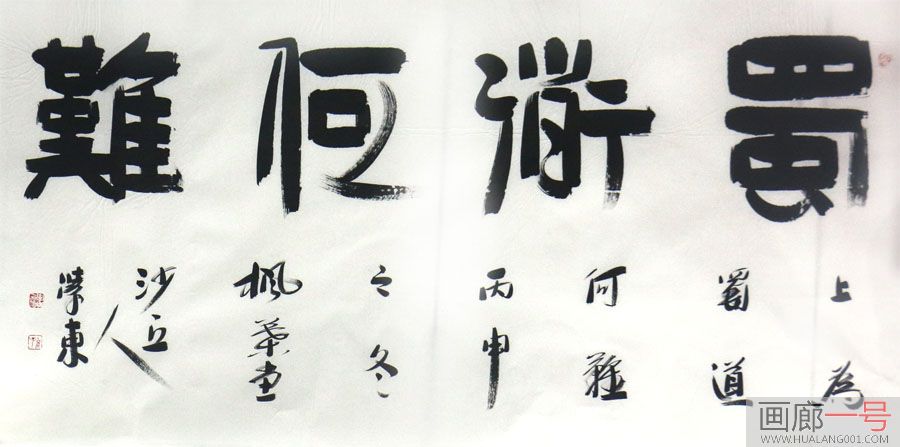 蜀衜何難
上為
蜀道
何難
丙申
之冬
楓葉堂
沙丘人
東
画廊一号
WWW.HUALANG001.COM